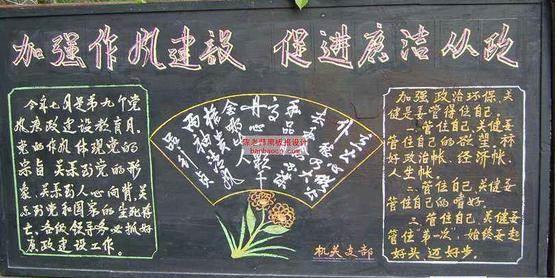 加强作风建设 促进廉洁从政
今年七月是第九个党
风廉政建设教育月。
党的作风体现党的
宗旨 关系到党的形
象 关系到人心向背,关
系到党和国家的生死存
亡。各级领导务必抓好
廉政建设工作。
陈老师黑板报设计
banbaocn.com
加强政治环保,关
健是要管得住自己。
一、管住自己,关健要
管住自己的欲望,标
好政治帐、经济帐、
人生帐。
二、管住自己,关健要
管住自己的嗜好。
三、管住自己,关健要
管住"第一次",始终要起
好头,迈好步。
机关支部